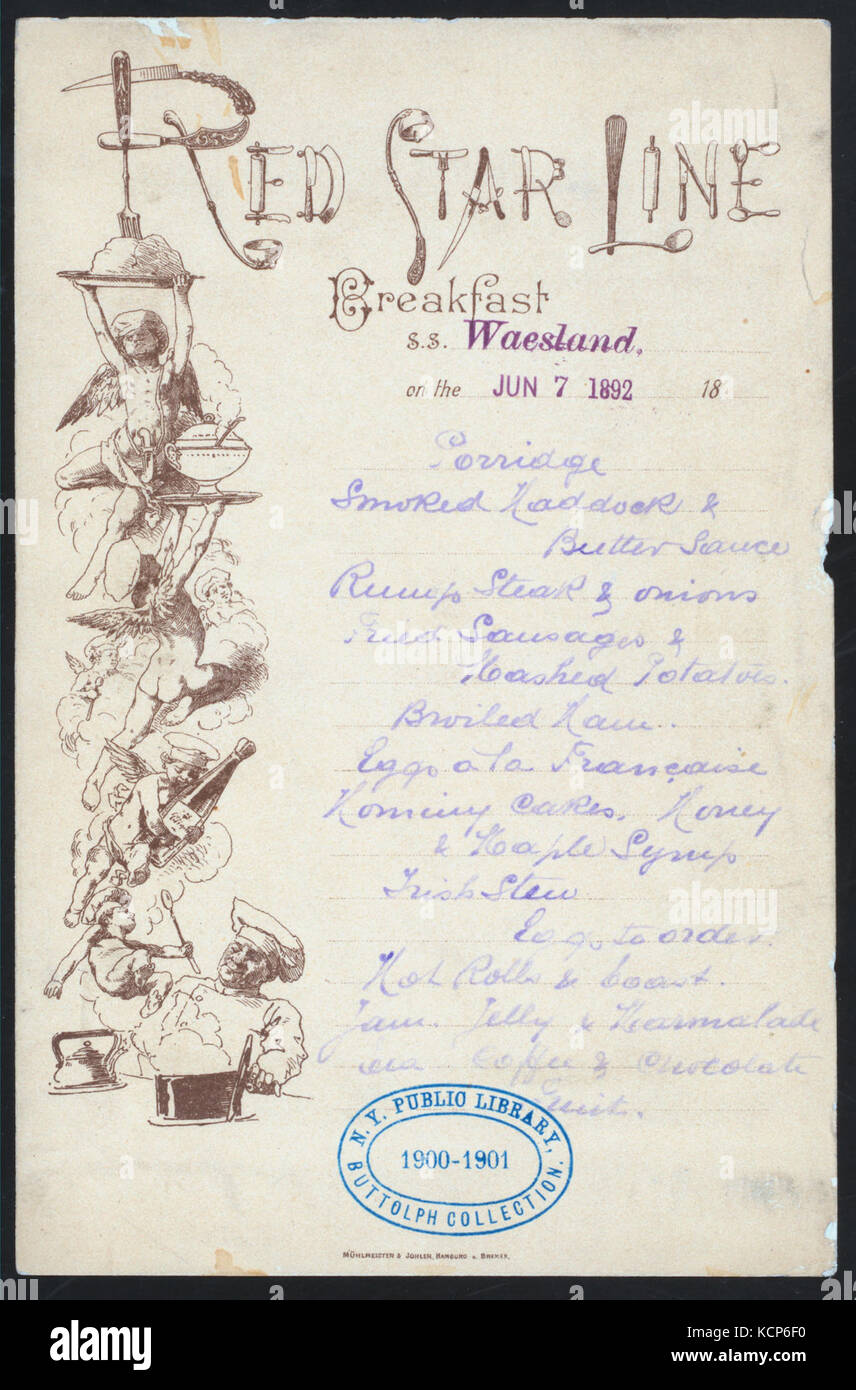 RED STAR LINE
Breakfast
s.s. Waesland,
on the JUN 7 1892 18
Porridge
Smoked Haddock &
Butter Sauce
Rump Steak & onions
Fried Sausages &
Mashed Potatoes.
Broiled Ham.
Eggs a la Française
Hominy Cakes, Honey
& Maple Syrup
Irish Stew
Eggs to order.
Hot Rolls & toast.
Jam. Jelly & Marmalade
Coffee & Chocolate
Fruit.
N.Y. PUBLIC LIBRARY,
1900-1901
BUTTOLPH COLLECTION.
MÜHLMEISTER & JOHLER, HAMBURG u. BREMEN.
alamy
alamy
Image ID: KCP6F0
www.alamy.com